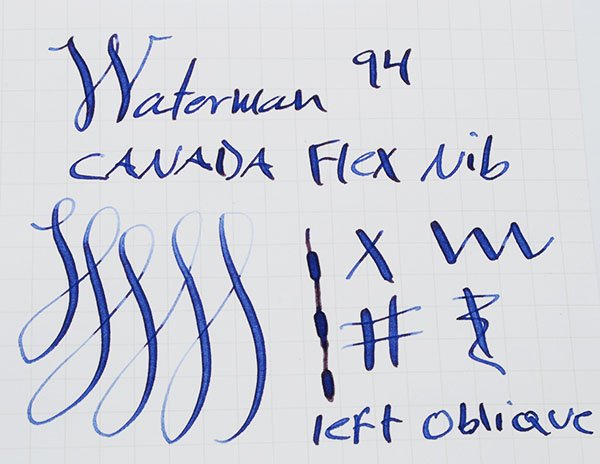 Waterman 94
CANADA Flex Nib
X
#
left Oblique